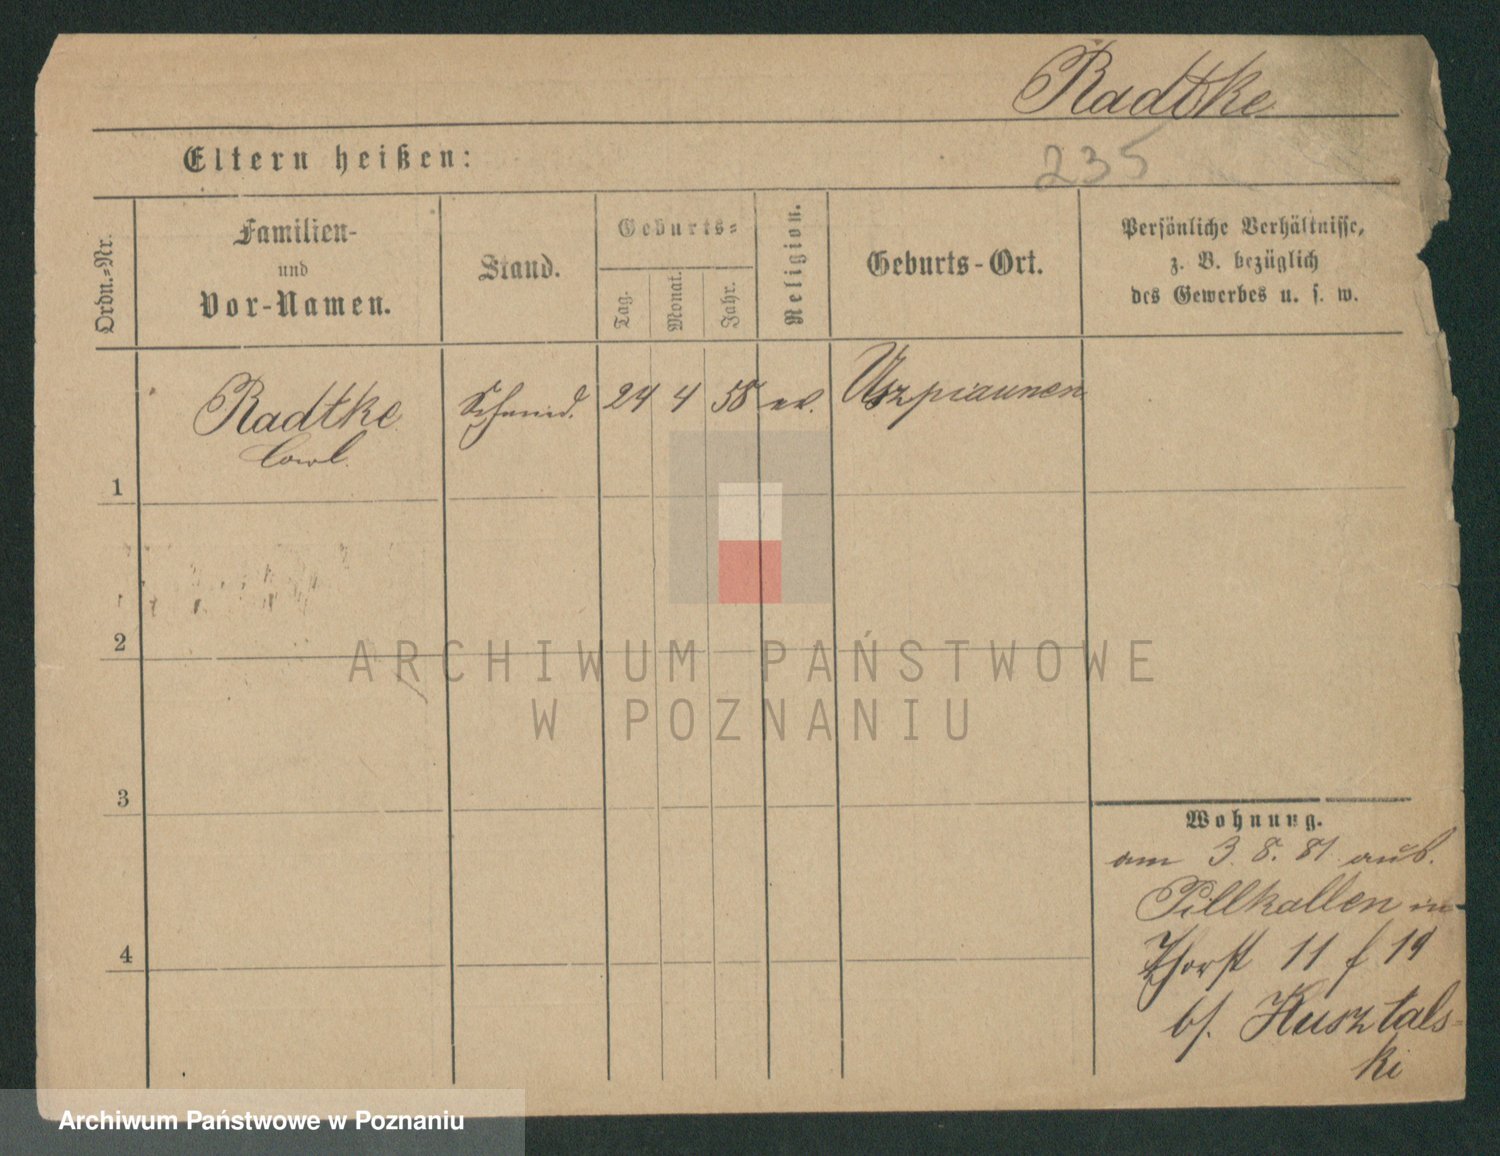 Radtke
Eltern heißen:
235
Ordn.=Nr.
Familien-
und
Vor-Namen.
Stand.
Geburts=
Tag.
Monat.
Jahr.
Religion.
Geburts-Ort.
Persönliche Verhältnisse,
z. B. bezüglich
des Gewerbes u. s. w.
1
Radtke
Carl.
Schmied.
24
4
58
ev.
Uszpiaunen
2
3
4
Wohnung.
am 3. 8. 81 aus.
Pillkallen in
11 f 19
bf. Kusztals-
ki
ARCHIWUM PAŃSTWOWE
W POZNANIU
Archiwum Państwowe w Poznaniu